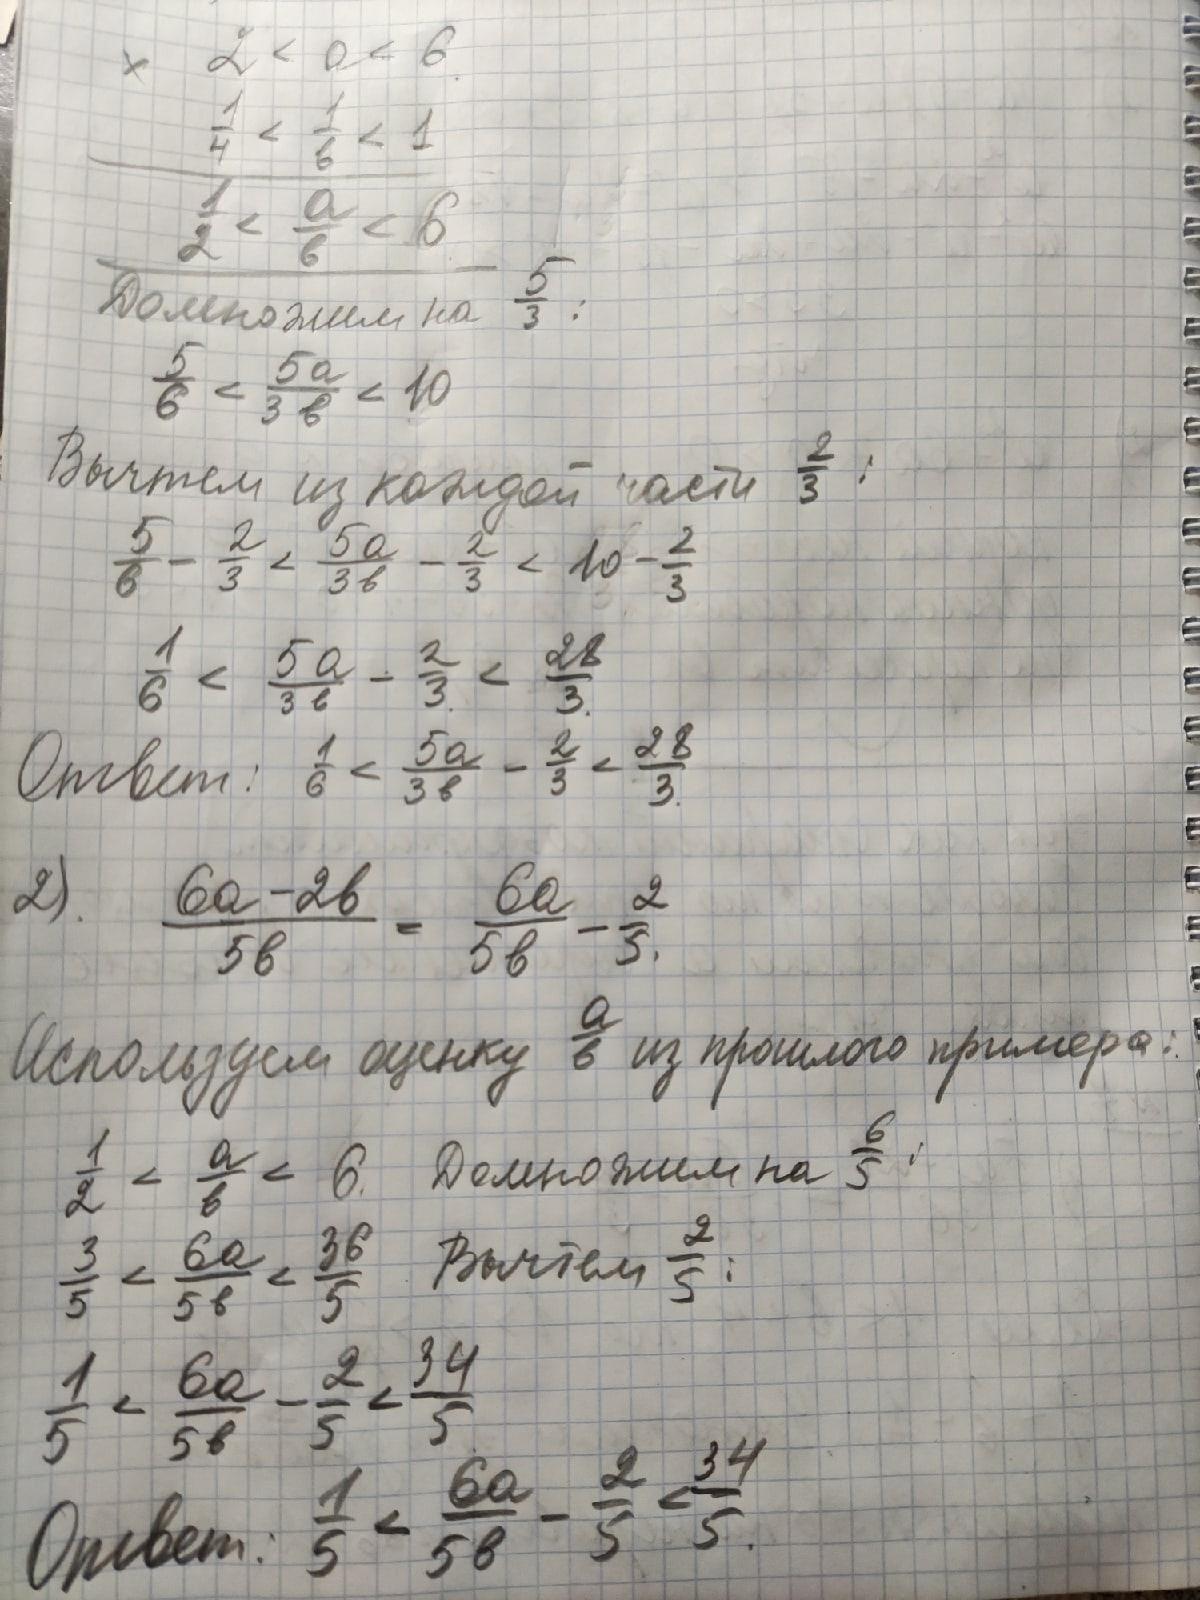 × 2 < a < 6
1/4 < 1/в < 1
1/2 < a/в < 6
Домножим на 5/3:
5/6 < 5a/3в < 10
Вычтем из каждой части 2/3:
5/6 - 2/3 < 5a/3в - 2/3 < 10 - 2/3
1/6 < 5a/3в - 2/3 < 28/3.
Ответ: 1/6 < 5a/3в - 2/3 < 28/3.
2). (6a-2в)/5в = 6a/5в - 2/5.
Используем оценку a/в из прошлого примера:
1/2 < a/в < 6. Домножим на 6/5:
3/5 < 6a/5в < 36/5 Вычтем 2/5:
1/5 < 6a/5в - 2/5 < 34/5
Ответ: 1/5 < 6a/5в - 2/5 < 34/5.